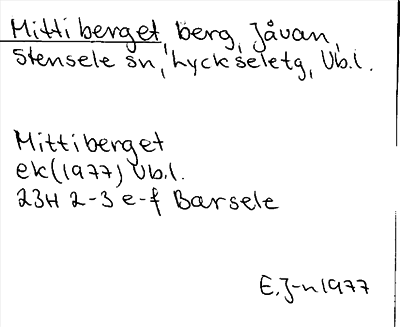 Mittiberget, berg, Jåvan,
Stensele sn, Lyckseletg, Vb.l.
Mittiberget
ek(1977) Vb.l.
23H 2-3 e-f Barsele
E.J-n 1977